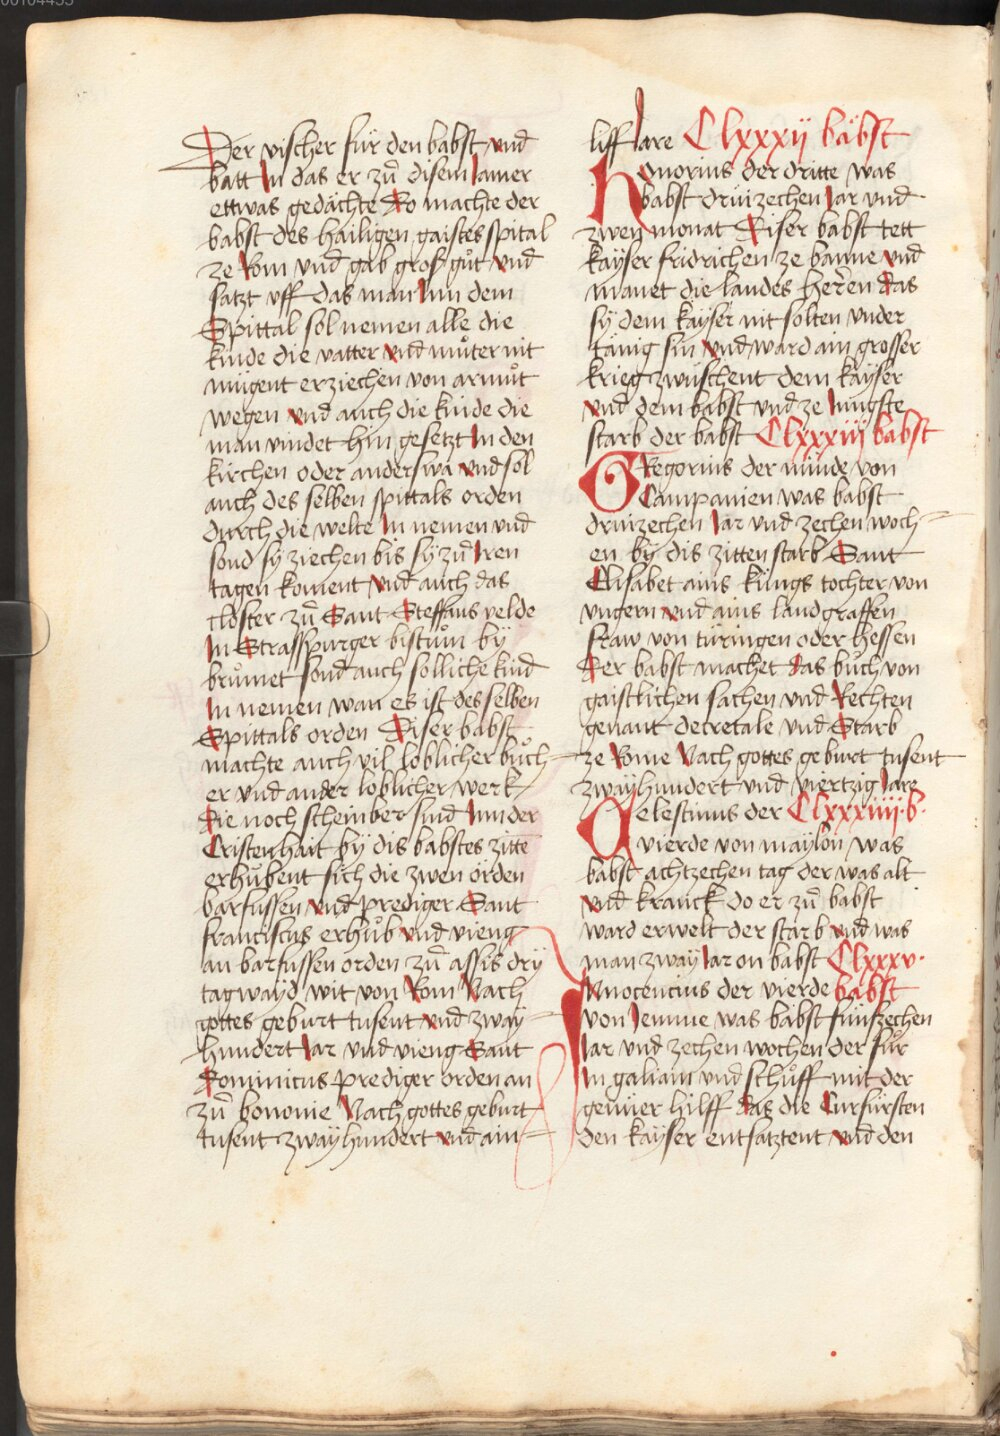 Der vischer für den babst vnd
batt In das er zů disem Jamer
ettwas gedächte Do machte der
babst des hailigen gaistes spital
ze Rom vnd gab gros gůt vnd
satzt vff das man Inn dem
Spittal sol nemen alle die
kinde die vatter vnd můter nit
mügent erziechen von armůt
wegen vnd auch die kinde die
man vindet hin gesetzt In den
kirchen oder anderswa vnd sol
auch des selben spittals orden
durch die welte In nemen vnd
sond sÿ ziechen bis sÿ zů Iren
tagen koment vnd auch das
closter zů Sant Steffans velde
In Strasspurger bistům bÿ
brůmet sond auch solliche kind
In nemen wan es ist des selben
Spittals orden Diser babst
machte auch vil loblicher bůch
er vnd ander loblicher werk
Die noch scheinber sind Inn der
Cristenhait bÿ dis babstes zitte
erhůbent sich die zwen örden
barfussen vnd prediger Sant
franciscus erhůb vnd vieng
an barfussen orden zů assis drÿ
tagwayd wit von Rom Nach
gottes geburt tusent vnd zwaÿ
hundert Jar vnd vieng Sant
Dominicus prediger orden an
zů bononie Nach gottes geburt
tusent zwaÿhundert vnd ain
liff Jare Clxxxij bäbst
Honorius der dritte was
babst drüizechen Jar vnd
zwen monat Diser babst tett
kaÿser fridrichen ze banne vnd
manet die landes herren das
sÿ dem kaÿser nit solten vnder
tänig sin vnd ward ain grosser
krieg zwüschent dem kaÿser
vnd dem babst vnd ze Jungste
starb der babst Clxxxiij babst
GRegorius der nünde von
Campanien was babst
drüizechen Jar vnd zechen woch
en bÿ dis zitten starb Sant
Elisabet ains küngs tochter von
vngern vnd ains landgraffen
fraw von türingen oder hessen
Der babst machet das bůch von
gaistlichen sachen vnd Rechten
genant decretale vnd Starb
ze Rome Nach gottes geburt tusent
zwaÿhundert vnd viertzig Jare
Celestinus der Clxxxiiij b
vierde von maÿlon was
babst achtzechen tag der was alt
vnd kranck do er zů babst
ward erwelt der starb vnd was
man zwaÿ Jar on babst Clxxxv
INnocencius der vierde babst
von Jennue was babst fünfzechen
Jar vnd zechen wochen der fůr
In galiam vnd schůff mit der
genüer hilff das die Curfürsten
den kaÿser entsatztent vnd den